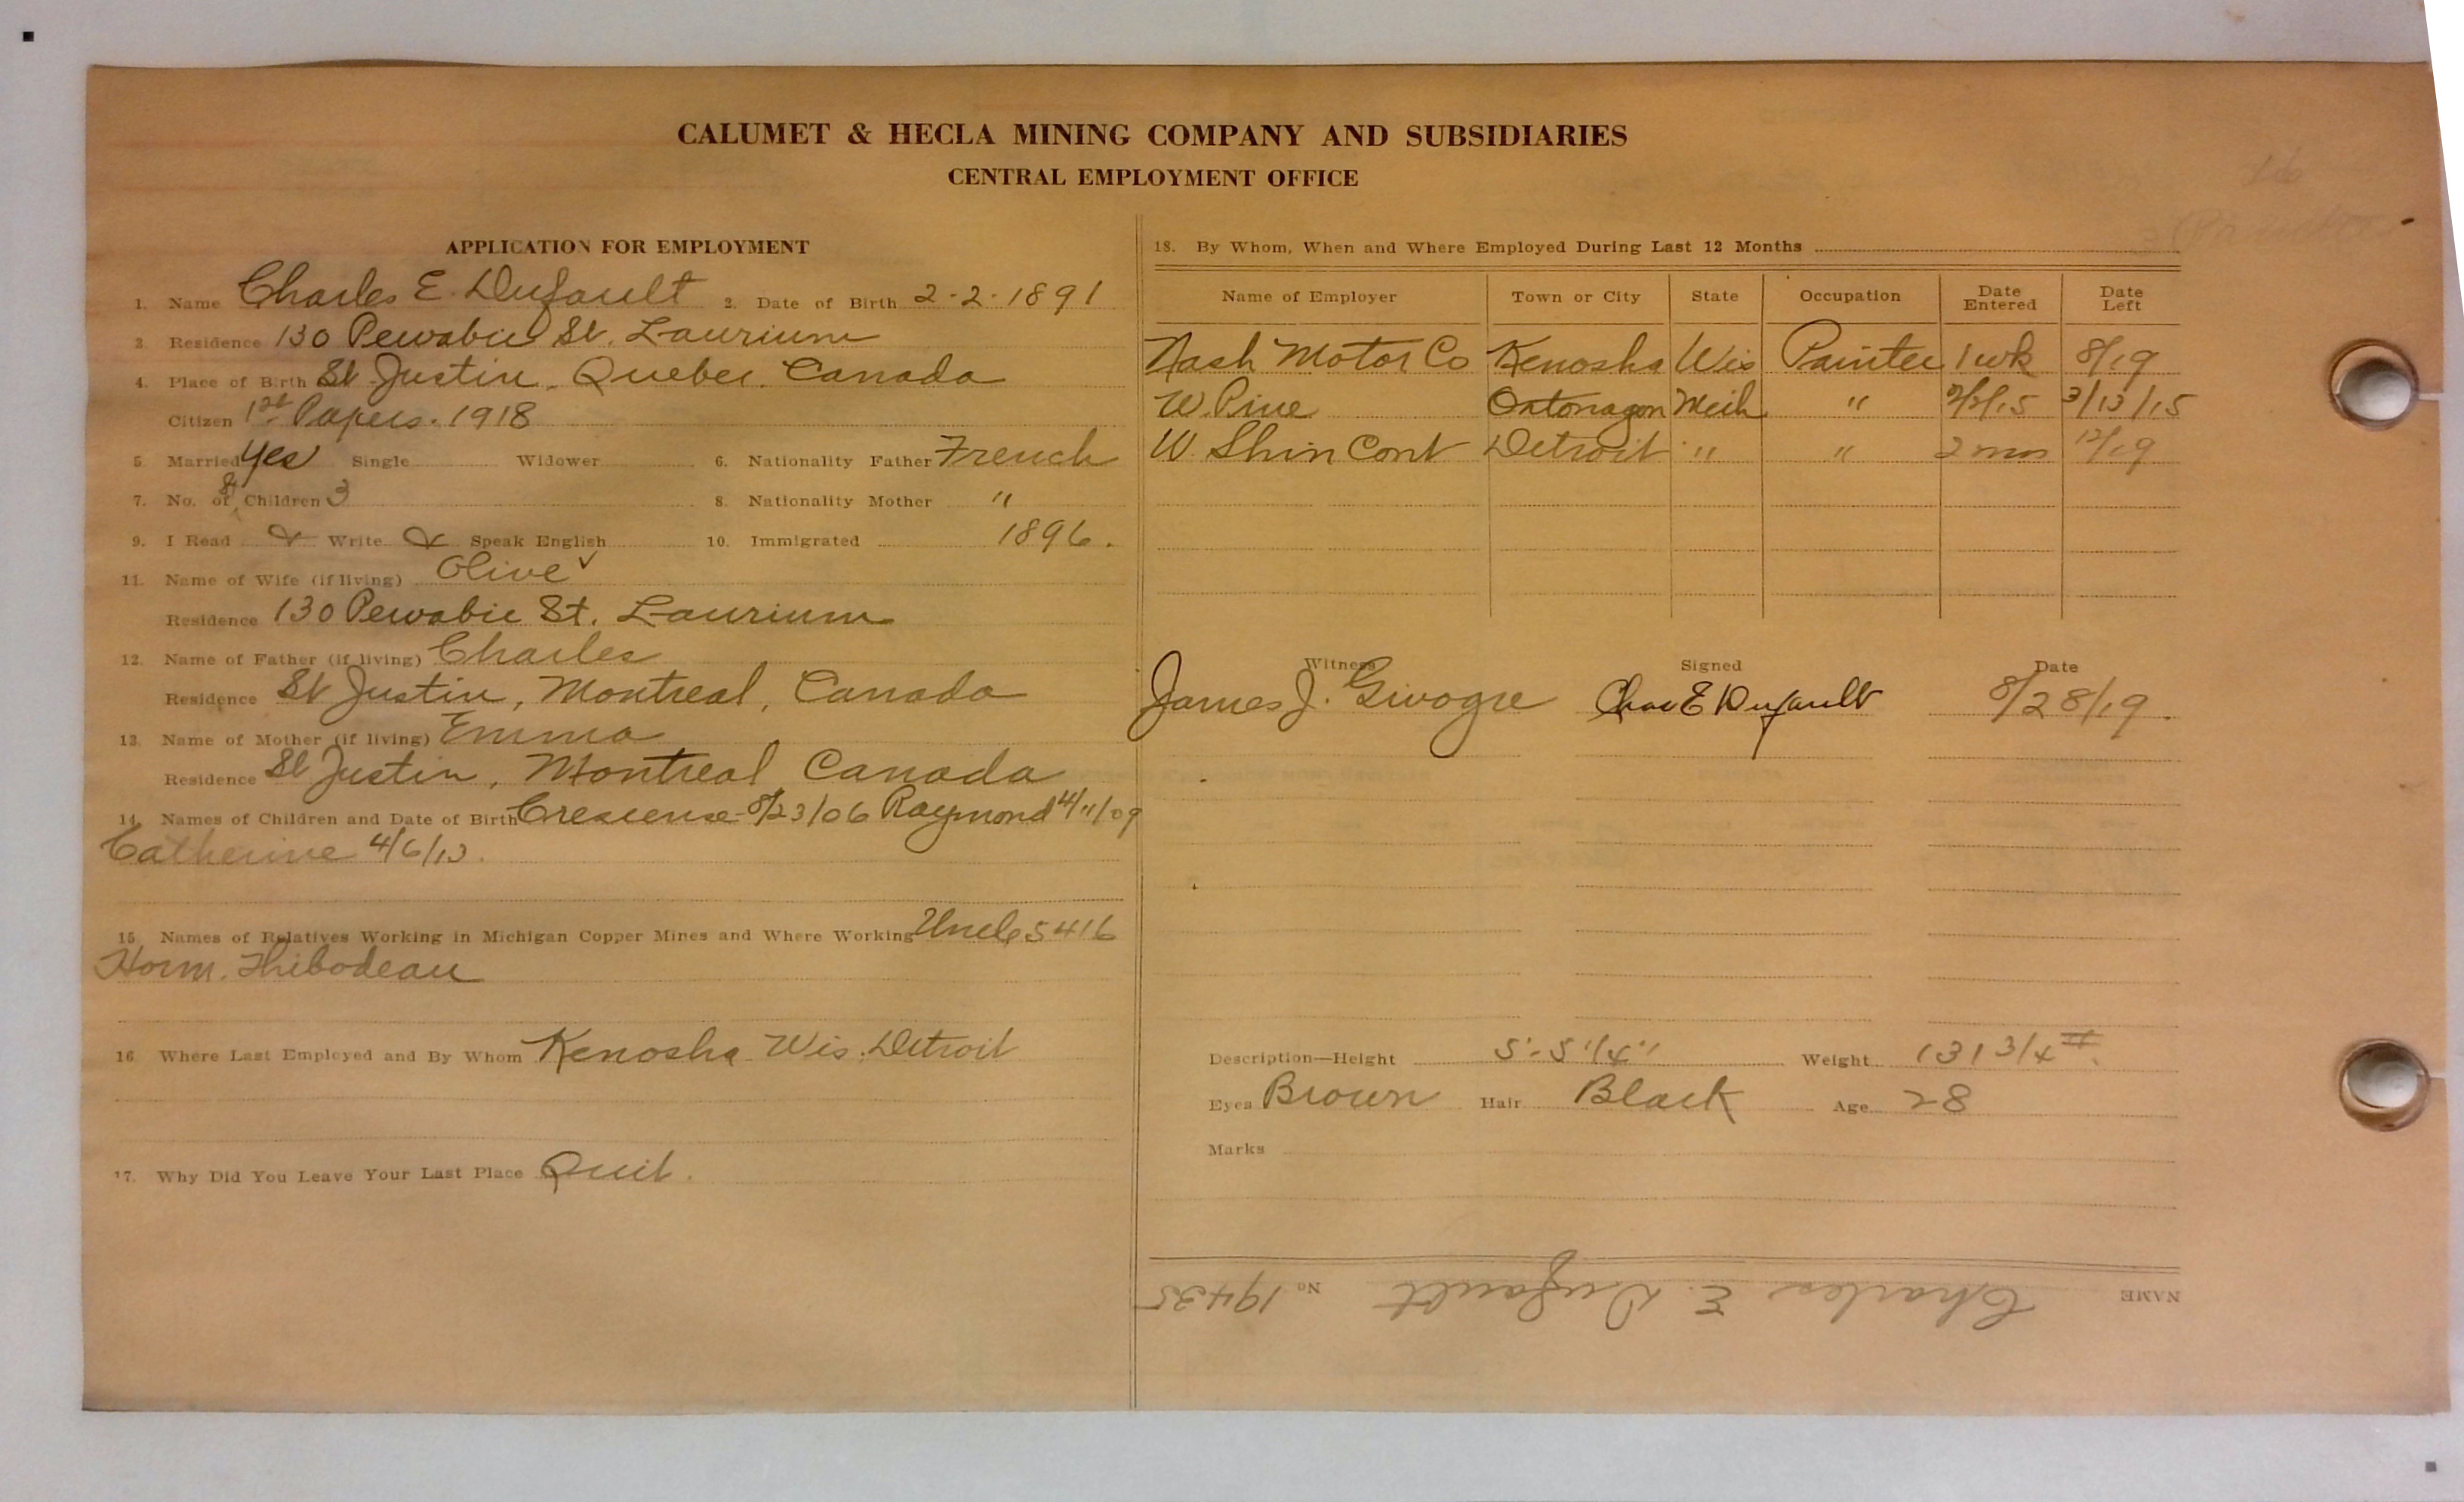 CALUMET & HECLA MINING COMPANY AND SUBSIDIARIES
CENTRAL EMPLOYMENT OFFICE
APPLICATION FOR EMPLOYMENT
1. Name Charles E. Dufault 2. Date of Birth 2-2-1891
3 Residence 130 Pewabic St. Laurium
4. Place of Birth St Justin, Quebec. Canada
Citizen 1st Papers. 1918
5 Married Yes Single Widower 6. Nationality Father French
7. No. of Children 3 8. Nationality Mother "
9. I Read & Write & Speak English 10. Immigrated 1896.
11. Name of Wife (if living) Olive ✓
Residence 130 Pewabic St. Laurium
12. Name of Father (if living) Charles
Residence St Justin, Montreal, Canada
13. Name of Mother (if living) Emma
Residence St Justin, Montreal Canada
14. Names of Children and Date of Birth Crescense-8/23/06 Raymond 4/11/09
Catherine 4/6/13.
15. Names of Relatives Working in Michigan Copper Mines and Where Working Uncle 5416
Horm. Thibodeau
16 Where Last Employed and By Whom Kenosha Wis. Detroit
17. Why Did You Leave Your Last Place Quit.
18. By Whom, When and Where Employed During Last 12 Months
Name of Employer Town or City State Occupation Date Entered Date Left
Nash Motor Co Kenosha Wis Painter 1 wk 8/19
W. Pine Ontonagon Mich " 3/13/15
W. Shin Cont Detroit " " 2 mos 12/19
Witness Signed Date
James J. Givogre Chas E Dufault 8/28/19.
Description—Height 5'-5 1/4" Weight 131 3/4 #.
Eyes Brown Hair Black Age 28
Marks
NAME Charles E. Dufault No 19435